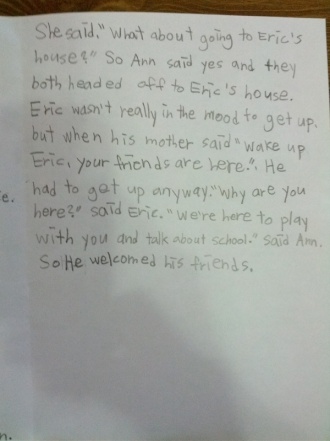 She said, "What about going to Eric's
house?" So Ann said yes and they
both headed off to Eric's house.
Eric wasn't really in the mood to get up.
but when his mother said "wake up
Eric, your friends are here.". He
had to get up anyway. "Why are you
here?" said Eric. "We're here to play
with you and talk about school." said Ann.
So He welcomed his friends.